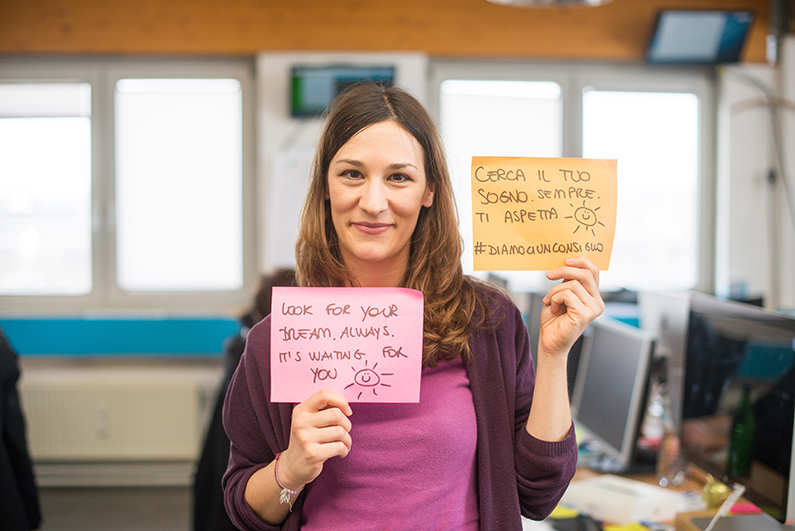 LOOK FOR YOUR
DREAM. ALWAYS.
IT'S WAITING FOR
YOU
CERCA IL TUO
SOGNO. SEMPRE.
TI ASPETTA
#DIAMOCIUNCONSIGLIO